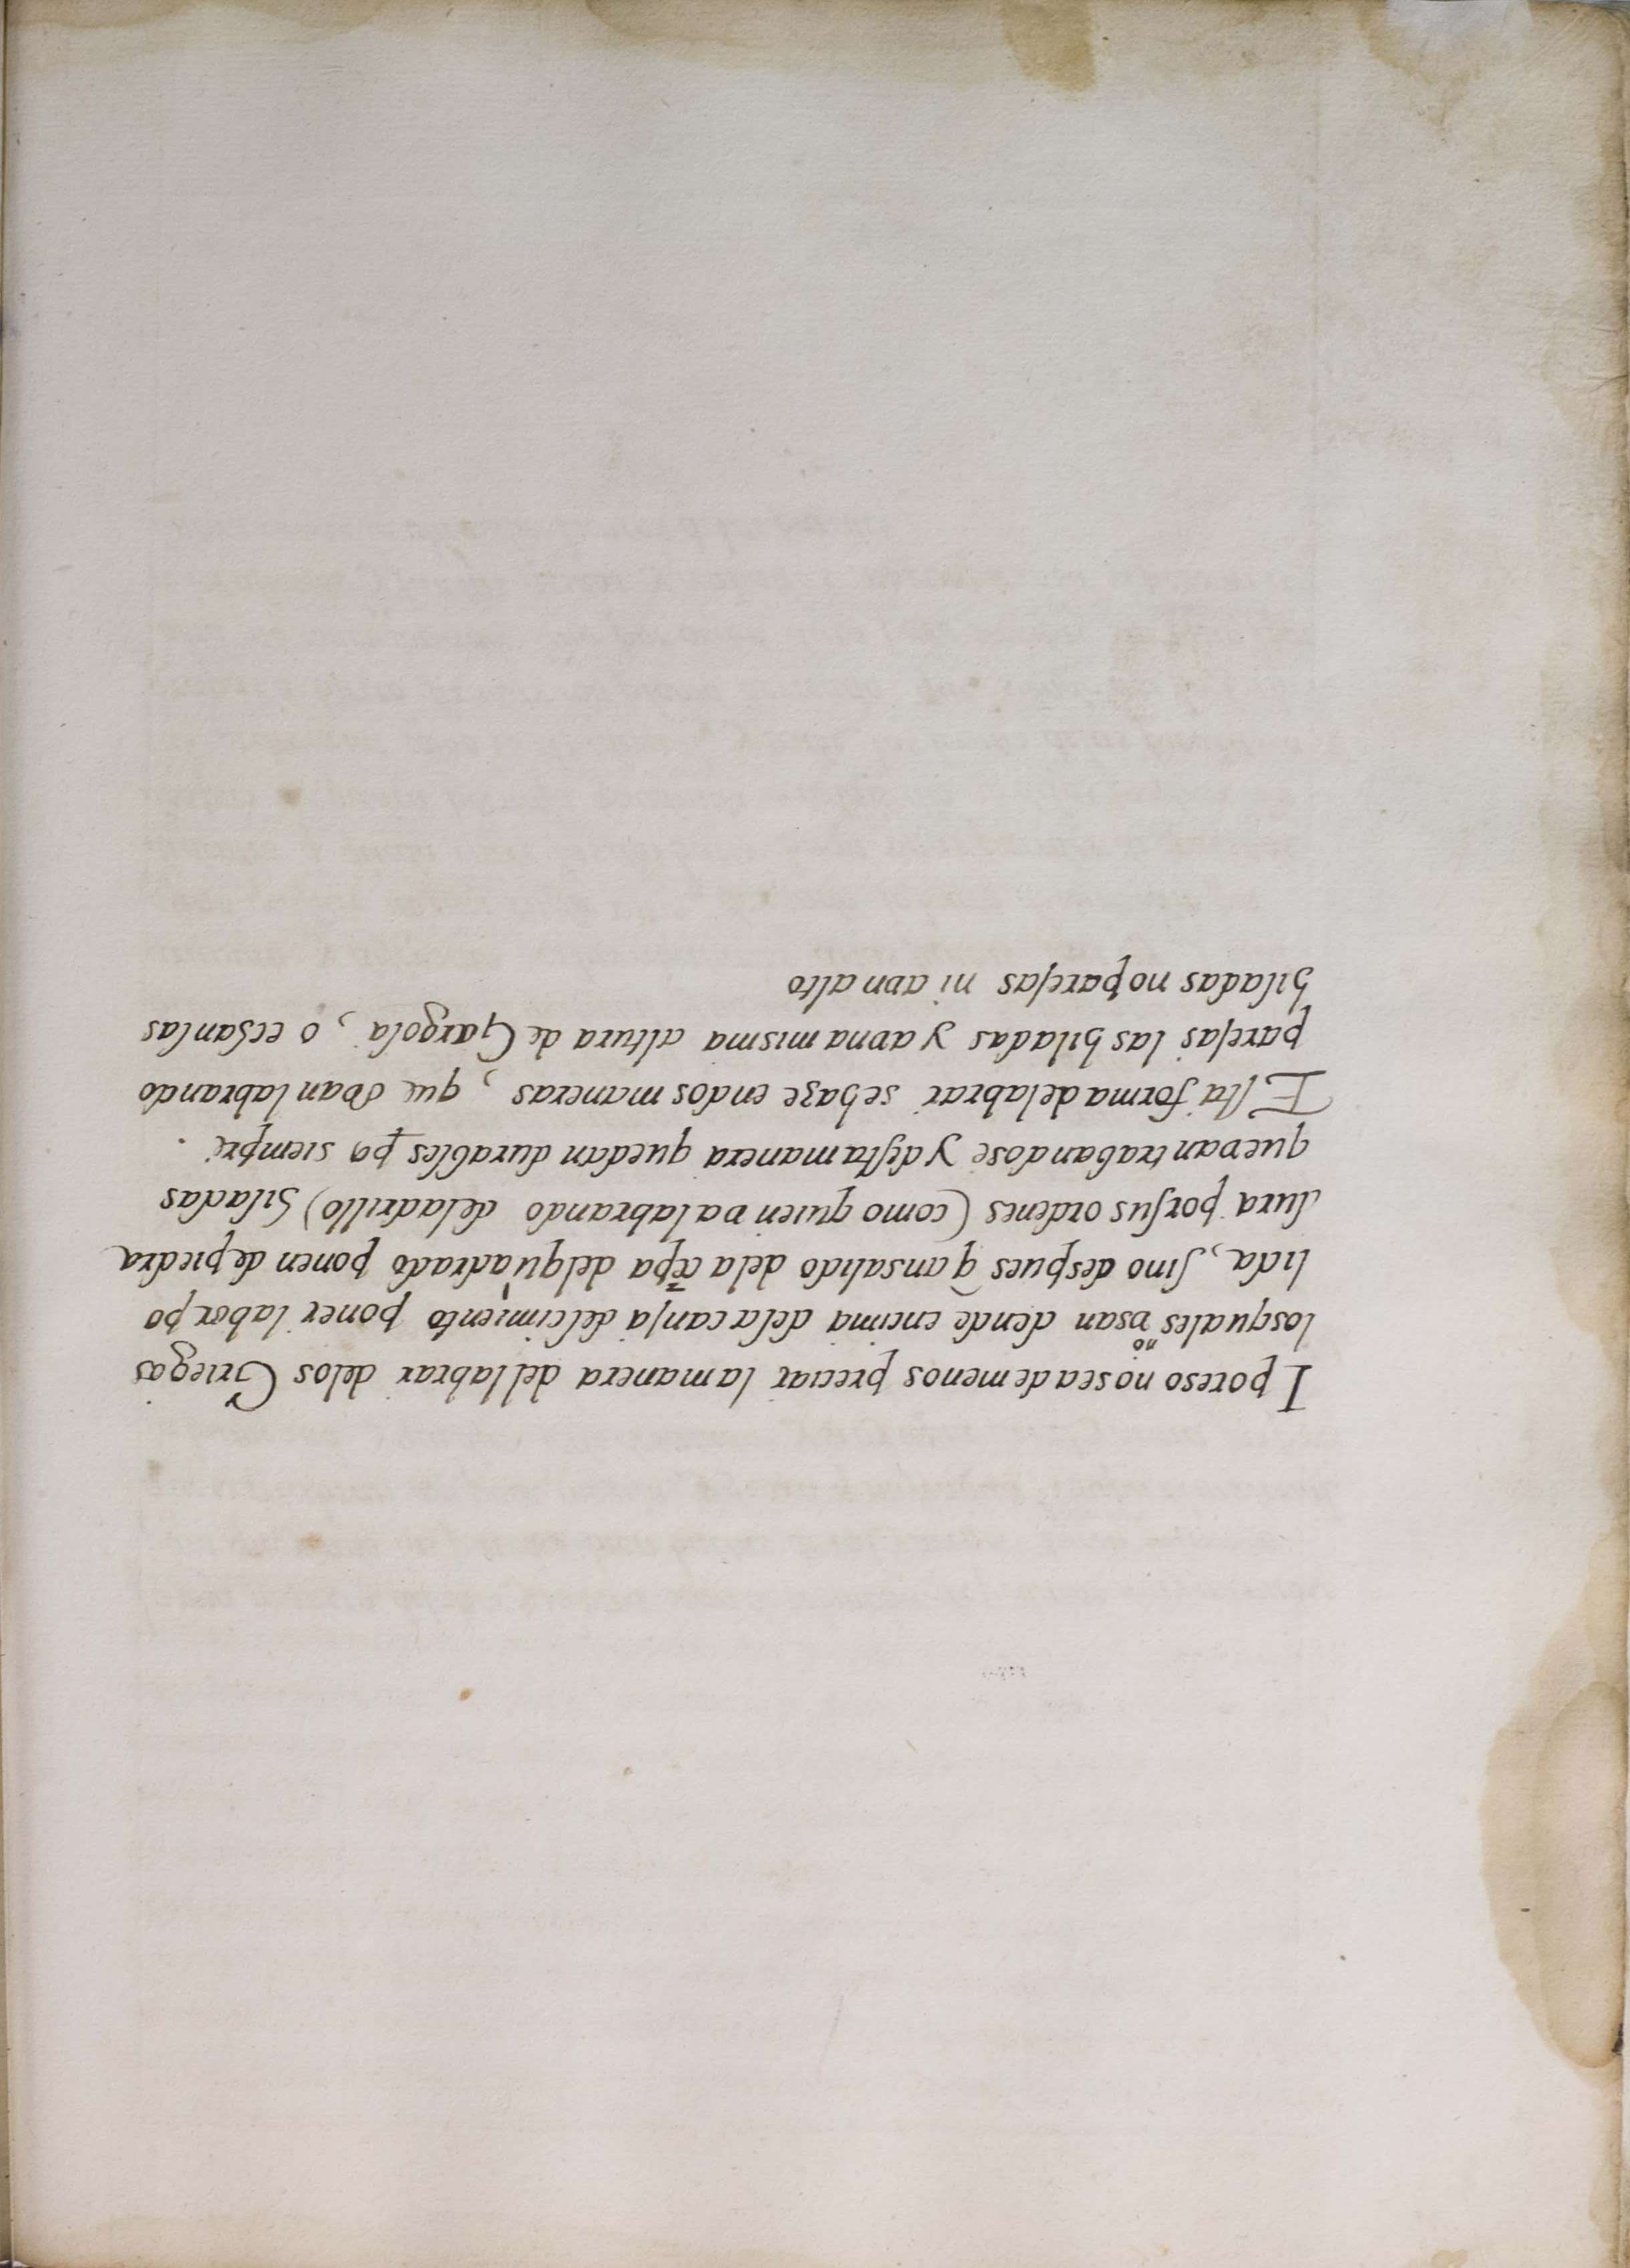 I poreso no sea de menos preciar la manera del labrar delos Griegos
los quales no vsan dende encima dela canja del cimiento poner labor po
lida, sino despues q̃ an salido dela cepa del quadrado ponen de piedra
dura por sus ordenes (como quien va labrando de ladrillo) hiladas
que van trabandose y desta manera quedan durables pa siempre.
Esta forma de labrar se haze en dos maneras, que o van labrando
parejas las hiladas y a vna misma altura de Gargola, o echanlas
hiladas no parejas ni a vn alto